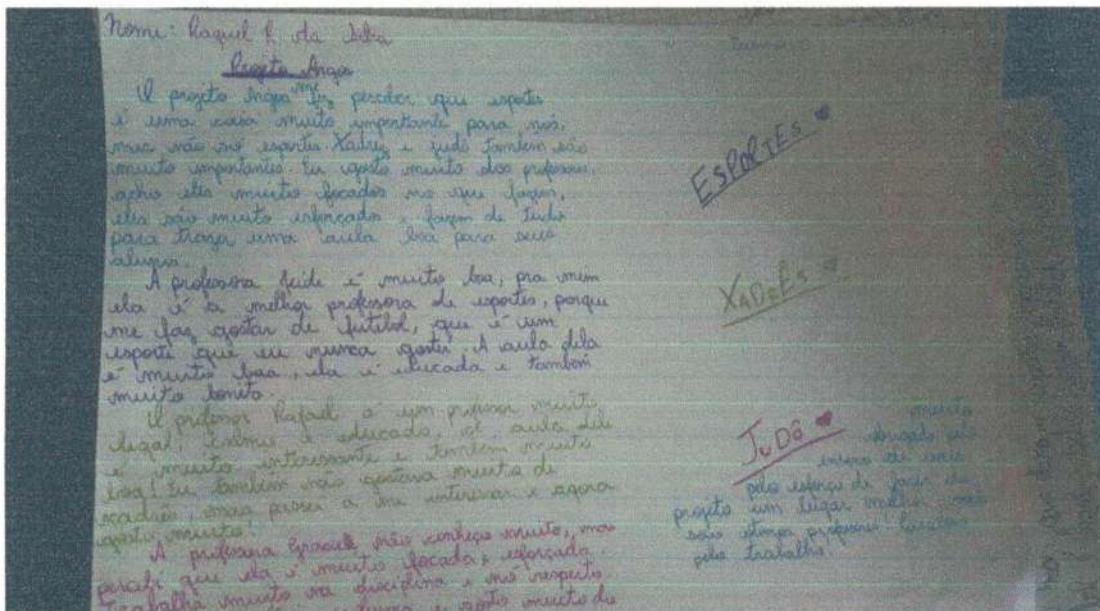 Nome: Raquel R. da Silva
Projeto Angos
O projeto Angos me fez perceber que esportes
é uma coisa muito importante para nós,
mas não só esportes. Xadrez e judô também são
muito importantes. Eu gosto muito dos professores,
acho eles muito focados no que fazem,
eles são muito esforçados e fazem de tudo
para trazer uma aula boa para seus
alunos.
A professora Neide é muito boa, pra mim
ela é a melhor professora de esportes, porque
me faz gostar de futebol, que é um
esporte que eu nunca gostei. A aula dela
é muito boa, ela é educada e também
muito bonita.
O professor Rafael é um professor muito
legal, e educado, a aula dele
é muito interessante e também muito
boa! Eu também não gostava muito de
xadrês, mas passei a me interesar e agora
gosto muito!
A professora não conheço muito, mas
percebi que ela é muito focada, esforçada.
Trabalha muito na disciplina e no respeito
e gosto muito de
ESPORTEs
XADRêEs
JuDô
muito
obrigado
pelo esforço de fazer do
projeto um lugar melhor, vocês
são ótimos professores!
pelo trabalho!